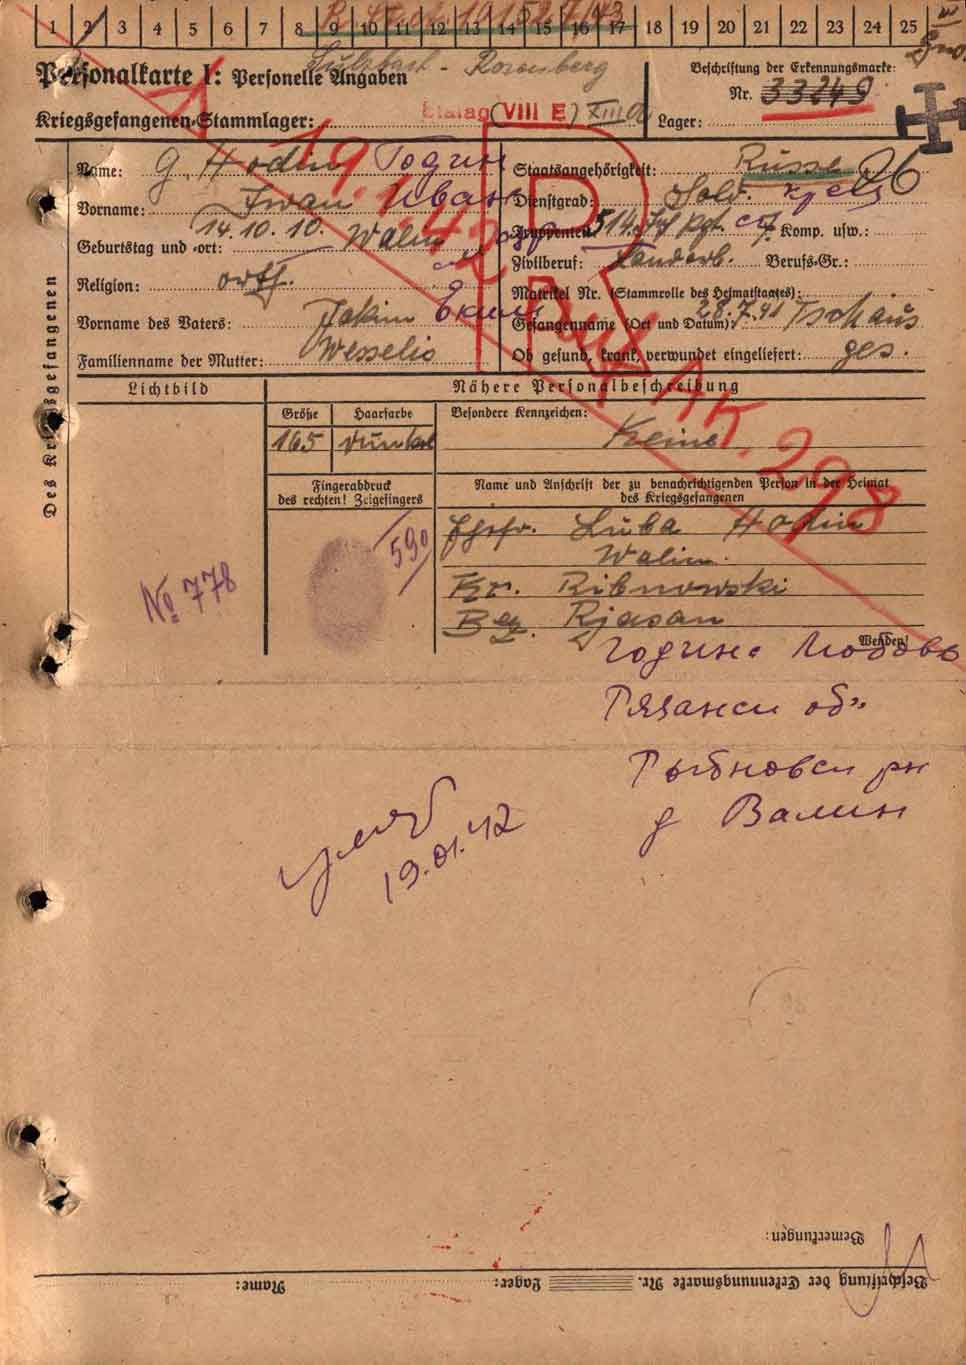 1 2 3 4 5 6 7 8 9 10 11 12 13 14 15 16 17 18 19 20 21 22 23 24 25
Sulzbach - Rosenberg
Personalkarte I: Personelle Angaben
Beschriftung der Erkennungsmarke:
Nr. 33249
Kriegsgefangenen-Stammlager: Stalag (VIII E) XIII
Lager:
Des Kriegsgefangenen
Name: G Hodin Годин
Staatsangehörigkeit: Russe 26
Vorname: Iwan Иван
Dienstgrad: Sold.
Geburtstag und -ort: 14.10.10. Walin
Truppenteil: 514. Inf Rgt. Komp. usw.:
Zivilberuf: Landarb. Berufs-Gr.:
Religion: orth.
Matrikel Nr. (Stammrolle des Heimatstaates):
Vorname des Vaters: Jakim Еким
Gefangennahme (Ort und Datum): 28.7.41 Tschaus
Familienname der Mutter: Wesselis
Ob gesund, krank, verwundet eingeliefert: ges.
R
19.1.42 AK. 298
Lichtbild
Nähere Personalbeschreibung
Größe
Haarfarbe
Besondere Kennzeichen:
165
dunkel
Keine
Fingerabdruck
des rechten! Zeigefingers
Name und Anschrift der zu benachrichtigenden Person in der Heimat
des Kriegsgefangenen
590
Luba Hodin
Walin
№ 778
Kr. Ribnowski
Bez. Rjasan
Wenden!
Година Любовь
Рязанси об"
Рыбновси рн
д Валин
19.01.42
Bemerkungen:
Beschriftung der Erkennungsmarke Nr. Lager: Name: